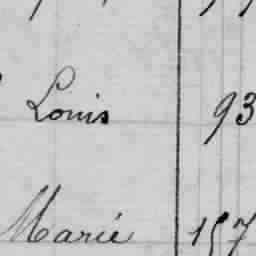 Louis 93
Marié 157